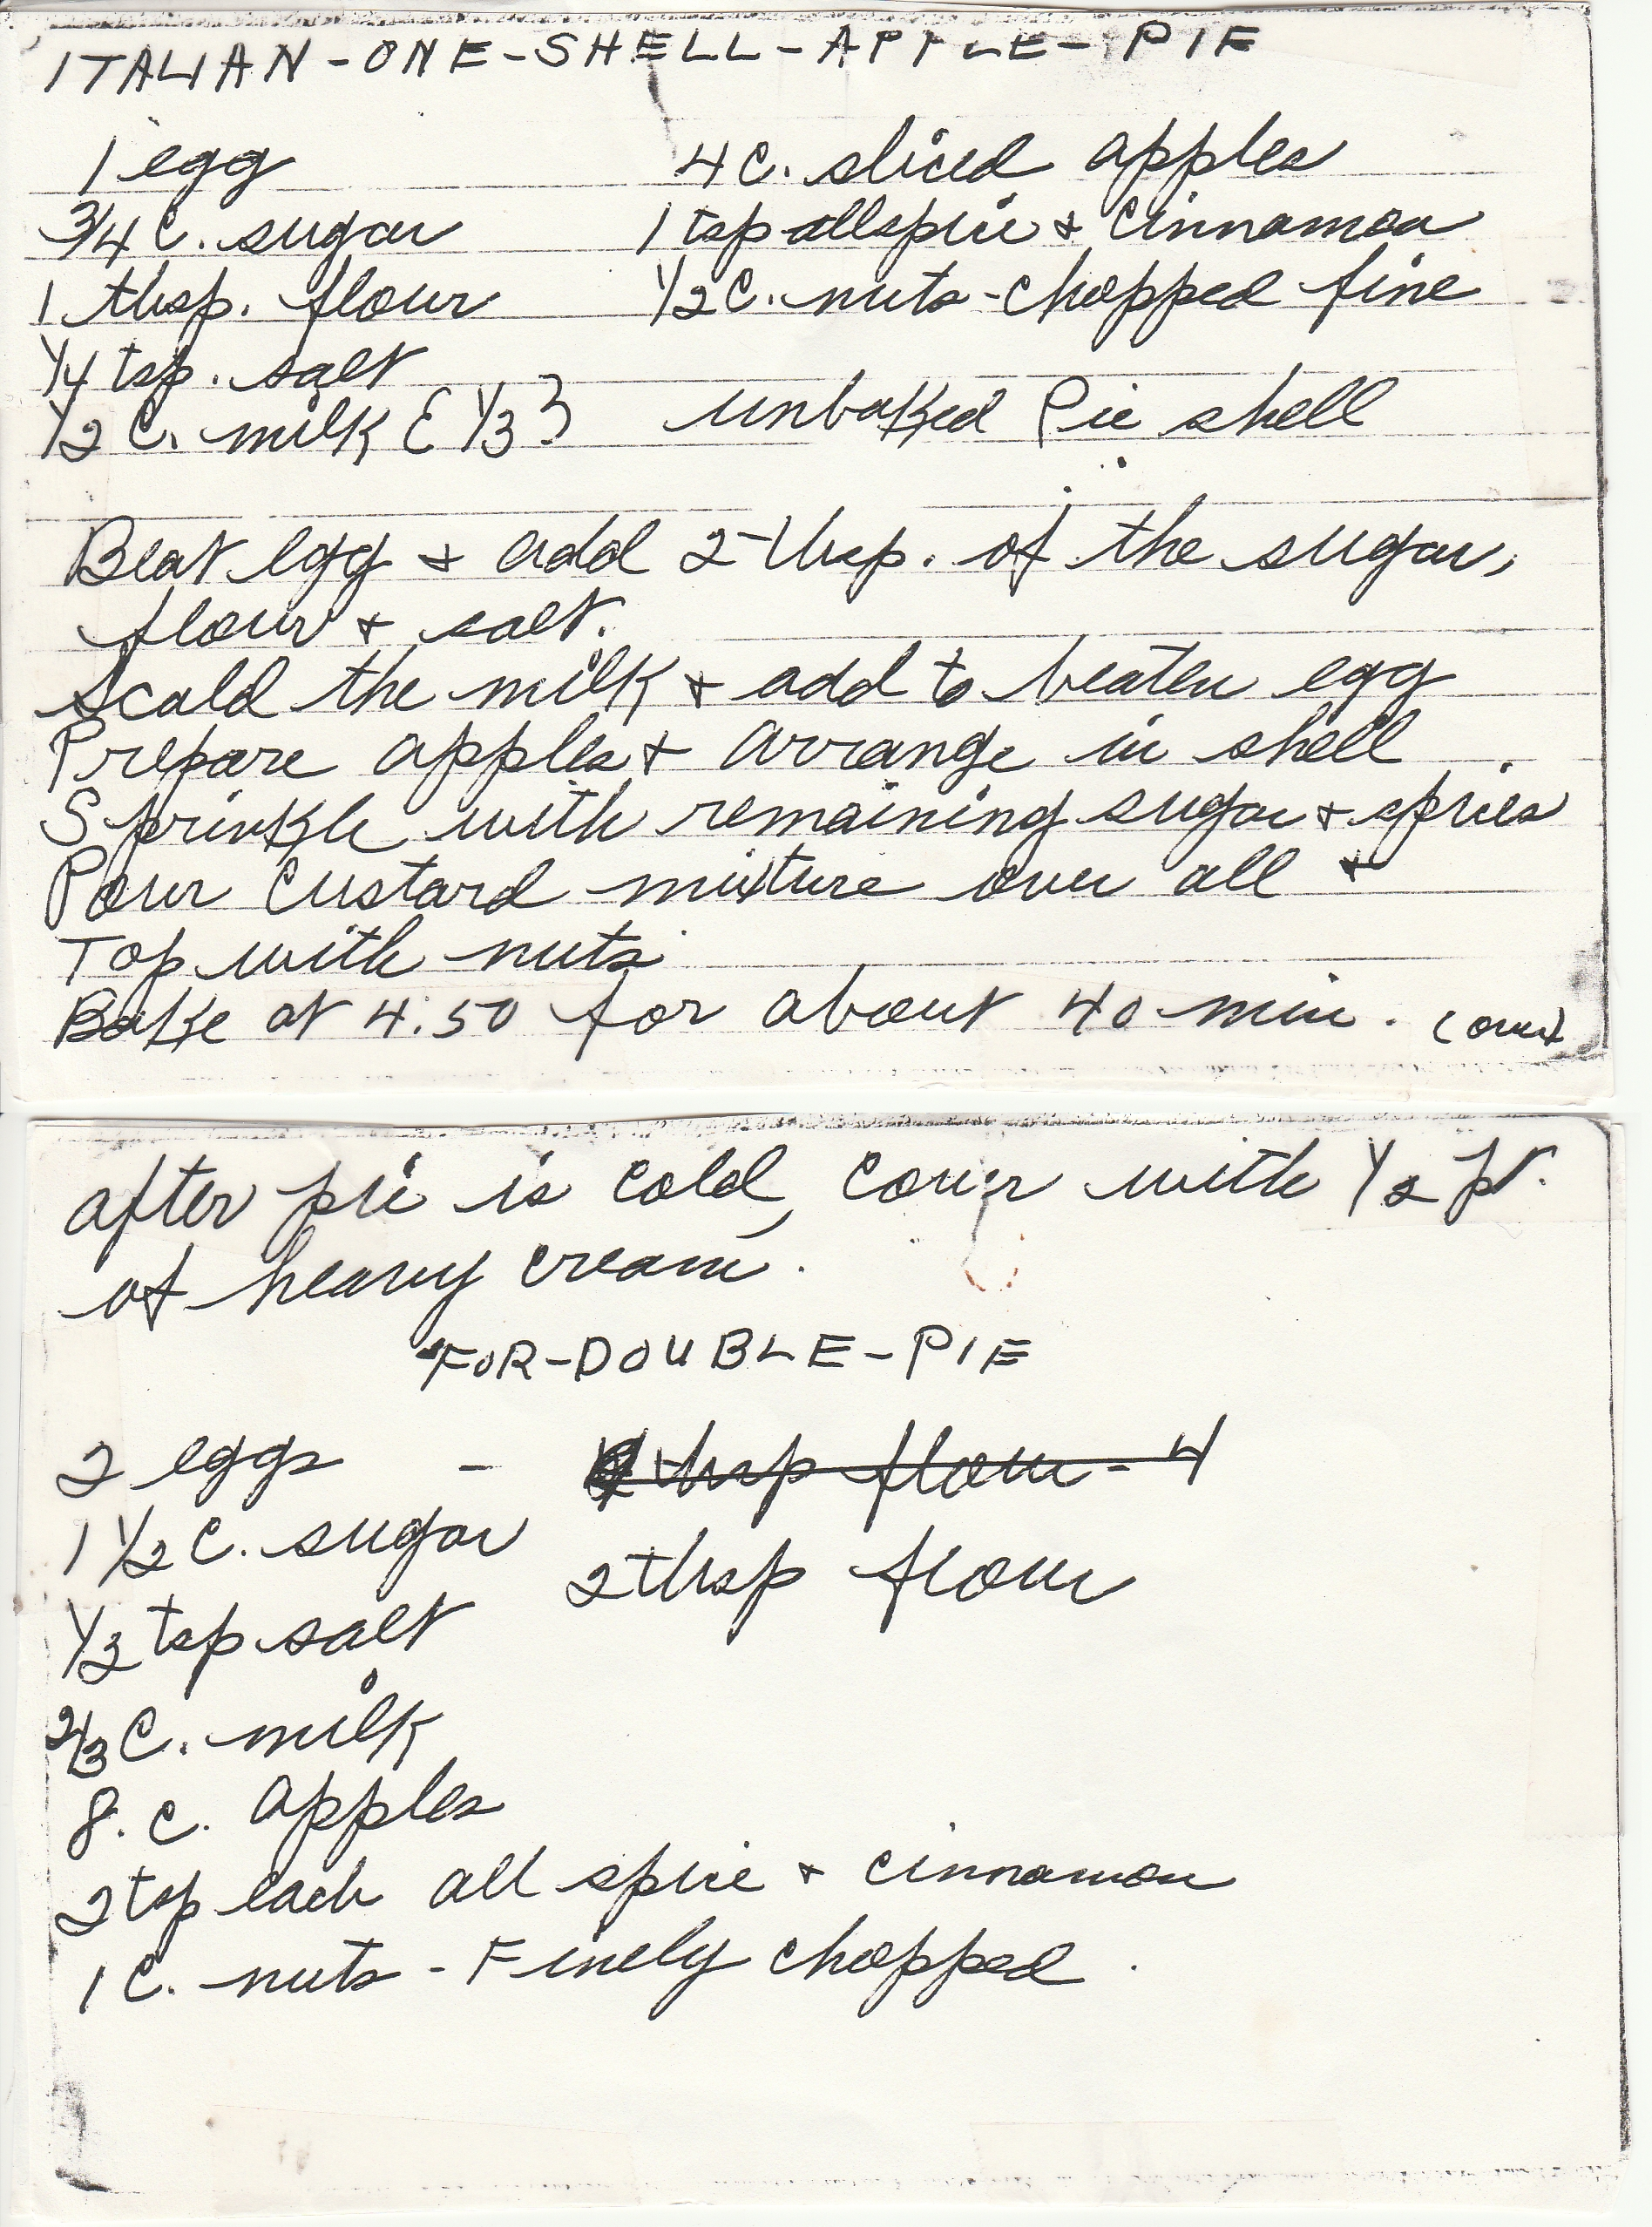 ITALIAN-ONE-SHELL-APPLE-PIE
1 egg 4 C. sliced apples
3/4 C. sugar 1 tsp allspice & cinnamon
1 tbsp. flour 1/2 C. nuts-chopped fine
1/4 tsp. salt
1/2 C. milk { 1/3 } unbaked Pie shell
Beat egg & add 2 tbsp. of the sugar,
flour & salt.
Scald the milk & add to beaten egg
Prepare apples & arrange in shell
Sprinkle with remaining sugar & spices
Pour custard mixture over all &
Top with nuts
Bake at 4.50 for about 40 min. (over)
after pie is cold, cover with 1/2 pt.
of heavy cream.
FOR-DOUBLE-PIE
2 eggs - tbsp flour - 4
1 1/2 C. sugar
2 tbsp flour
1/2 tsp salt
2/3 C. milk
8. C. apples
2 tsp each all spice & cinnamon
1 C. nuts - Finely chopped.